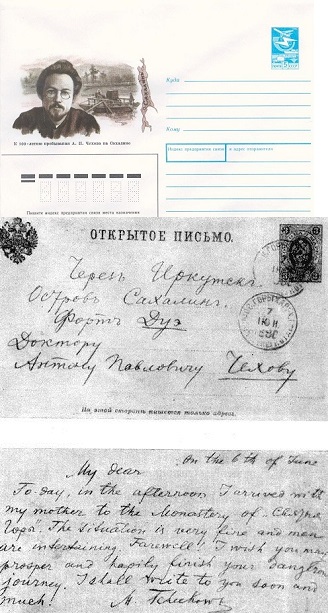 К 100-летию пребывания А. П. Чехова на Сахалине
Куда
Кому
Индекс предприятия связи и адрес отправителя
Пишите индекс предприятия связи места назначения
ОТКРЫТОЕ ПИСЬМО.
Черезъ Иркутскъ.
Островъ Сахалинъ.
Фортъ Дуэ
Доктору
Антону Павловичу Чехову
На этой сторонѣ пишется только адресъ.
On the 6th of June
My dear
To-day, in the afternoon I arrived with
my mother to the Monastery of „Святыя
Горы". The situation is very fine and
are intertaining. Farewell! I wish you may
prosper and hapily finish your
journey. I shall write to you soon and
much! M. Tchekhow